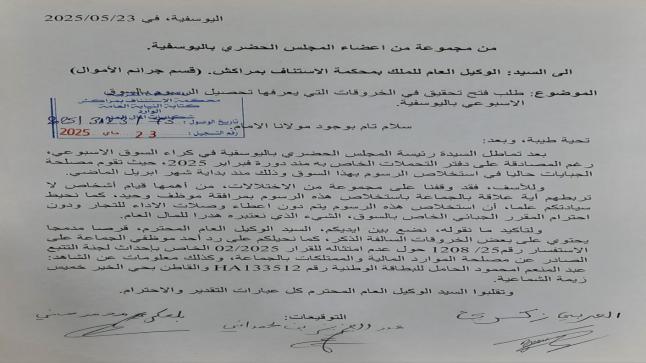 اليوسفية، في 2025/05/23
من مجموعة من اعضاء المجلس الحضري باليوسفية.
الى السيد: الوكيل العام للملك بمحكمة الاستئناف بمراكش. (قسم جرائم الأموال)
الموضوع: طلب فتح تحقيق في الخروقات التي يعرفها تحصيل الرسوم بالسوق
الاسبوعي باليوسفية.
محكمة الاستئناف بمراكش
كتابة النيابة العامة
الوارد
تاريخ الوصول:
رقم التسجيل:
23 ماي 2025
سلام تام بوجود مولانا الامام.
تحية طيبة، وبعد:
بعد تماطل السيدة رئيسة المجلس الحضري باليوسفية في كراء السوق الاسبوعي،
رغم المصادقة على دفتر التحملات الخاص به منذ دورة فبراير 2025، حيث تقوم مصلحة
الجبايات حاليا في استخلاص الرسوم بهذا السوق وذلك منذ بداية شهر ابريل الماضي.
وللأسف، فقد وقفنا على مجموعة من الاختلالات، من أهمها قيام أشخاص لا
تربطهم أية علاقة بالجماعة باستخلاص هذه الرسوم بمرافقة موظف وحيد، كما نحيط
سيادتكم علما، أن استخلاص هذه الرسوم يتم دون اعطاء وصلات الاداء للتجار ودون
احترام المقرر الجبائي الخاص بالسوق، الشيء الذي نعتبره هدرا للمال العام.
ولتأكيد ما نقوله، نضع بين ايديكم، السيد الوكيل العام المحترم، قرصا مدمجا
يحتوي على بعض الخروقات السالفة الذكر، كما نحيلكم على رد أحد موظفي الجماعة على
الاستفسار رقم 25/ 1208 حول عدم امتثاله للقرار 02/2025 الخاص بإحداث لجنة التتبع
الصادر عن مصلحة الموارد المالية والممتلكات بالجماعة، وكذلك معلومات عن الشاهد:
عبد المنعم امحمود الحامل للبطاقة الوطنية رقم HA133512 والقاطن بحي الخير خميس
زيمة الشماعية.
وتقبلوا السيد الوكيل العام المحترم كل عبارات التقدير والاحترام.
التوقيعات: